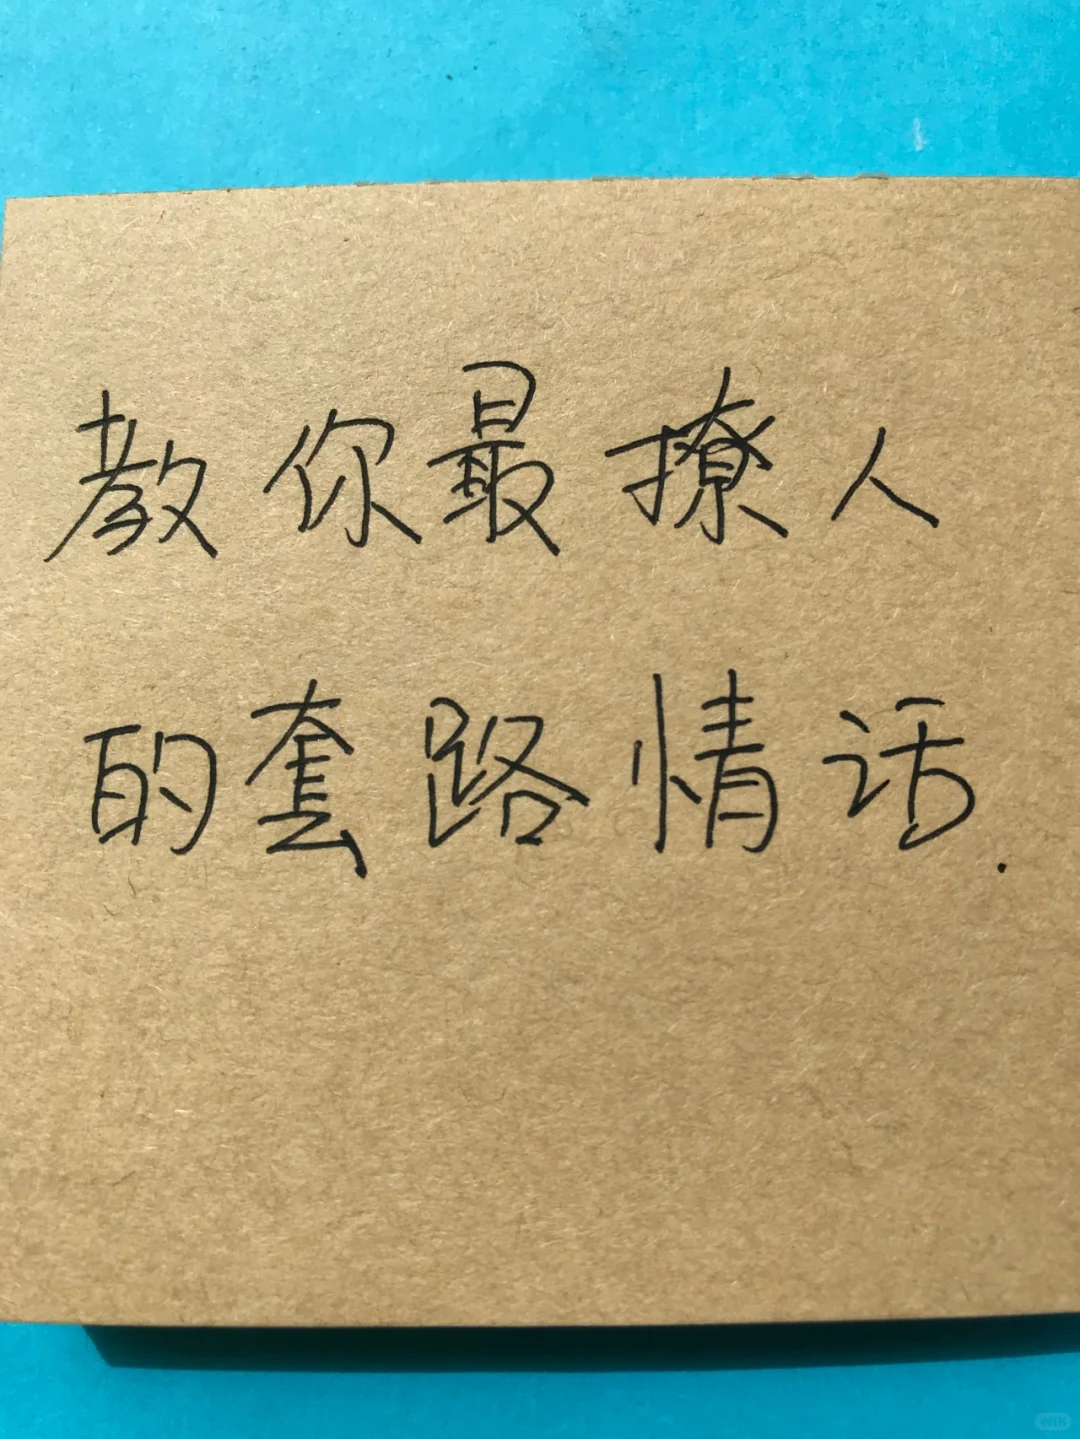 教你最撩人
的套路情话.